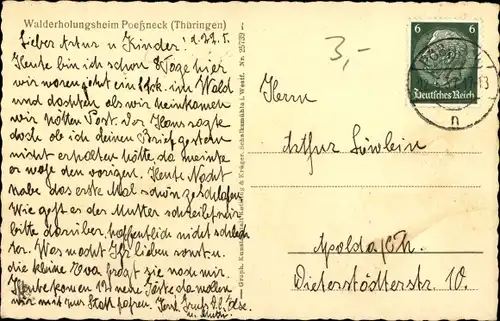 Walderholungsheim Poeßneck (Thüringen)
d. 22. 5.
Lieber Artur u Kinder!
Heute bin ich schon Tage hier
wir waren im Wald
und dachten als wir heimkamen
wir hätten Post. Der Hans sagte
doch ob ich deinen Brief gestern
nicht erhalten hätte, da meinte
er wäre den vorigen. Heute Nacht
habe das erste Mal schön geschlafen.
Wie geht es der Mutter schreibe mir
bitte darüber, hoffentlich nicht schlech
ter. Was macht Ihr lieben sonst u.
die kleine Eva fragt sie nach mir.
Heute kommen 12 neue Gäste da wollen
wir mit zur Stadt fahren. Herzl. Gruß
Graph. Kunstanstalt Krüger, Schalksmühle i. Westf. Nr. 25739
3,-
6 6
Deutsches Reich
n
Herrn
Arthur Löwlein
Apolda/Th.
Dieterstädterstr. 10.